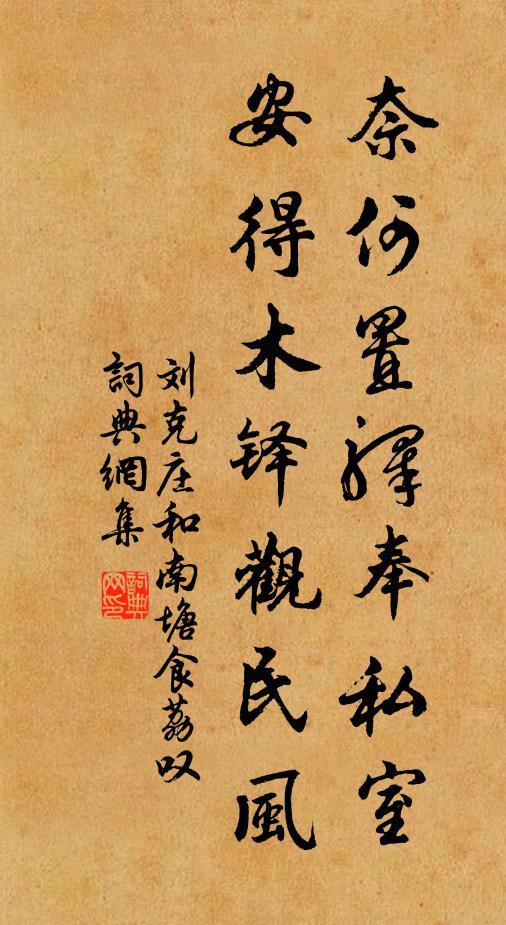 奈何置驛奉私室
安得木铎觀民風
刘克庄和南塘食荔叹
詞典網集
詞典网印